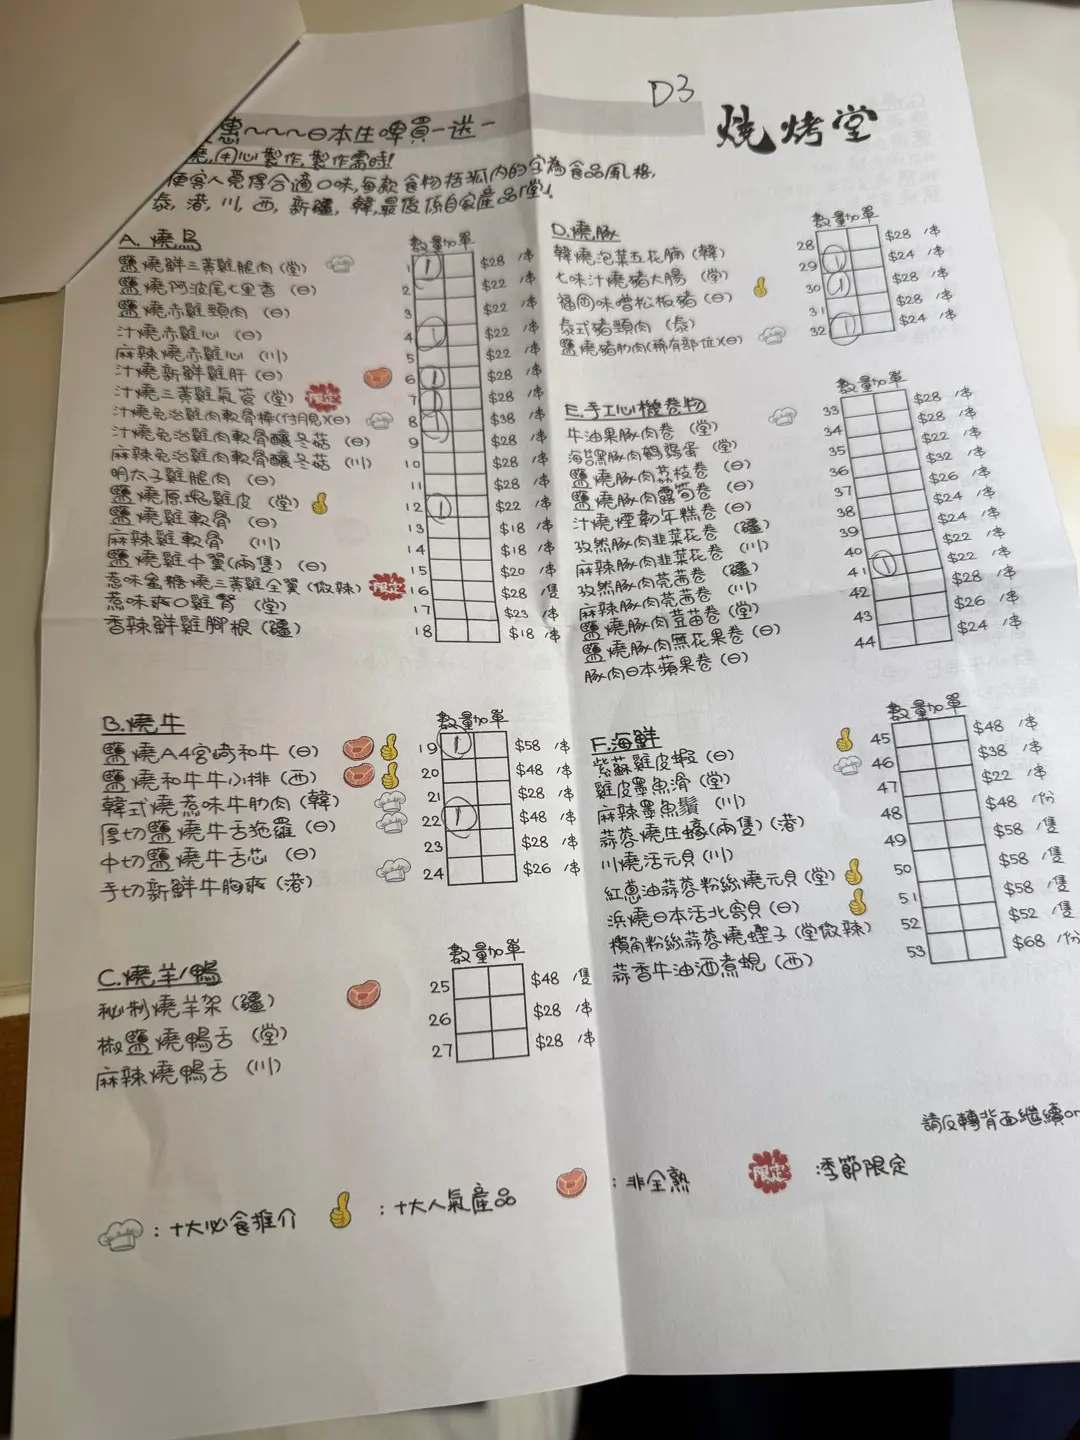 D3
燒烤堂
惠~~~日本生啤買一送一
燒,用心製作,製作需時!
使客人覓得合適口味,每款食物括弧內的字為食品風格,
泰,港,川,西,新疆,韓,最後係自家產品「堂」!
A. 燒鳥 數量加單
鹽燒鮮三黃雞腿肉(堂) 1 1 $28 /串
鹽燒阿波尾七里香(日) 2 $22 /串
鹽燒赤雞頸肉(日) 3 $22 /串
汁燒赤雞心(日) 4 1 $22 /串
麻辣燒赤雞心(川) 5 $22 /串
汁燒新鮮雞肝(日) 6 1 $28 /串
汁燒三黃雞氣管(堂) 限定 7 1 $28 /串
汁燒免治雞肉軟骨棒(付月見)(日) 8 1 $38 /串
汁燒免治雞肉軟骨釀冬菇(日) 9 $28 /串
麻辣免治雞肉軟骨釀冬菇(川) 10 $28 /串
明太子雞腿肉(日) 11 $28 /串
鹽燒原塊雞皮(堂) 12 1 $22 /串
鹽燒雞軟骨(日) 13 $18 /串
麻辣雞軟骨(川) 14 $18 /串
鹽燒雞中翼(兩隻)(日) 15 $20 /串
惹味蜜糖燒三黃雞全翼(微辣) 限定 16 $28 /隻
惹味爽口雞腎(堂) 17 $23 /串
香辣鮮雞腳根(疆) 18 $18 /串
B. 燒牛 數量加單
鹽燒A4宮崎和牛(日) 19 1 $58 /串
鹽燒和牛牛小排(西) 20 $48 /串
韓式燒惹味牛肋肉(韓) 21 $28 /串
厚切鹽燒牛舌拖羅(日) 22 1 $48 /串
中切鹽燒牛舌芯(日) 23 $28 /串
手切新鮮牛胸爽(港) 24 $26 /串
C. 燒羊/鴨 數量加單
秘制燒羊架(疆) 25 $48 /隻
椒鹽燒鴨舌(堂) 26 $28 /串
麻辣燒鴨舌(川) 27 $28 /串
D. 燒豚 數量加單
韓燒泡菜五花腩(韓) 28 $28 /串
七味汁燒豬大腸(堂) 29 1 $24 /串
福岡味噌松板豬(日) 30 1 $28 /串
泰式豬頸肉(泰) 31 $28 /串
鹽燒豬肋肉(稀有部位)(日) 32 1 $24 /串
E. 手工心機卷物 數量加單
牛油果豚肉卷(堂) 33 $28 /串
海苔黑豚肉鵪鶉蛋(堂) 34 $28 /串
鹽燒豚肉荔枝卷(日) 35 $22 /串
鹽燒豚肉露筍卷(日) 36 $32 /串
汁燒煙韌年糕卷(日) 37 $26 /串
孜然豚肉韭菜花卷(疆) 38 $24 /串
麻辣豚肉韭菜花卷(川) 39 $24 /串
孜然豚肉芫茜卷(疆) 40 $22 /串
麻辣豚肉芫茜卷(川) 41 1 $22 /串
鹽燒豚肉荳苗卷(堂) 42 $28 /串
鹽燒豚肉無花果卷(日) 43 $26 /串
豚肉日本蘋果卷(日) 44 $24 /串
F. 海鮮 數量加單
紫蘇雞皮蝦(日) 45 $48 /串
雞皮墨魚滑(堂) 46 $38 /串
麻辣墨魚鬚(川) 47 $22 /串
蒜蓉燒生蠔(兩隻)(港) 48 $48 /份
川燒活元貝(川) 49 $58 /隻
紅蔥油蒜蓉粉絲燒元貝(堂) 50 $58 /隻
浜燒日本活北寄貝(日) 51 $58 /隻
欖角粉絲蒜蓉燒蟶子(堂微辣) 52 $52 /隻
蒜香牛油酒煮蜆(西) 53 $68 /份
請反轉背面繼續or
:十大必食推介
:十大人氣產品
:非全熟
限定 :季節限定